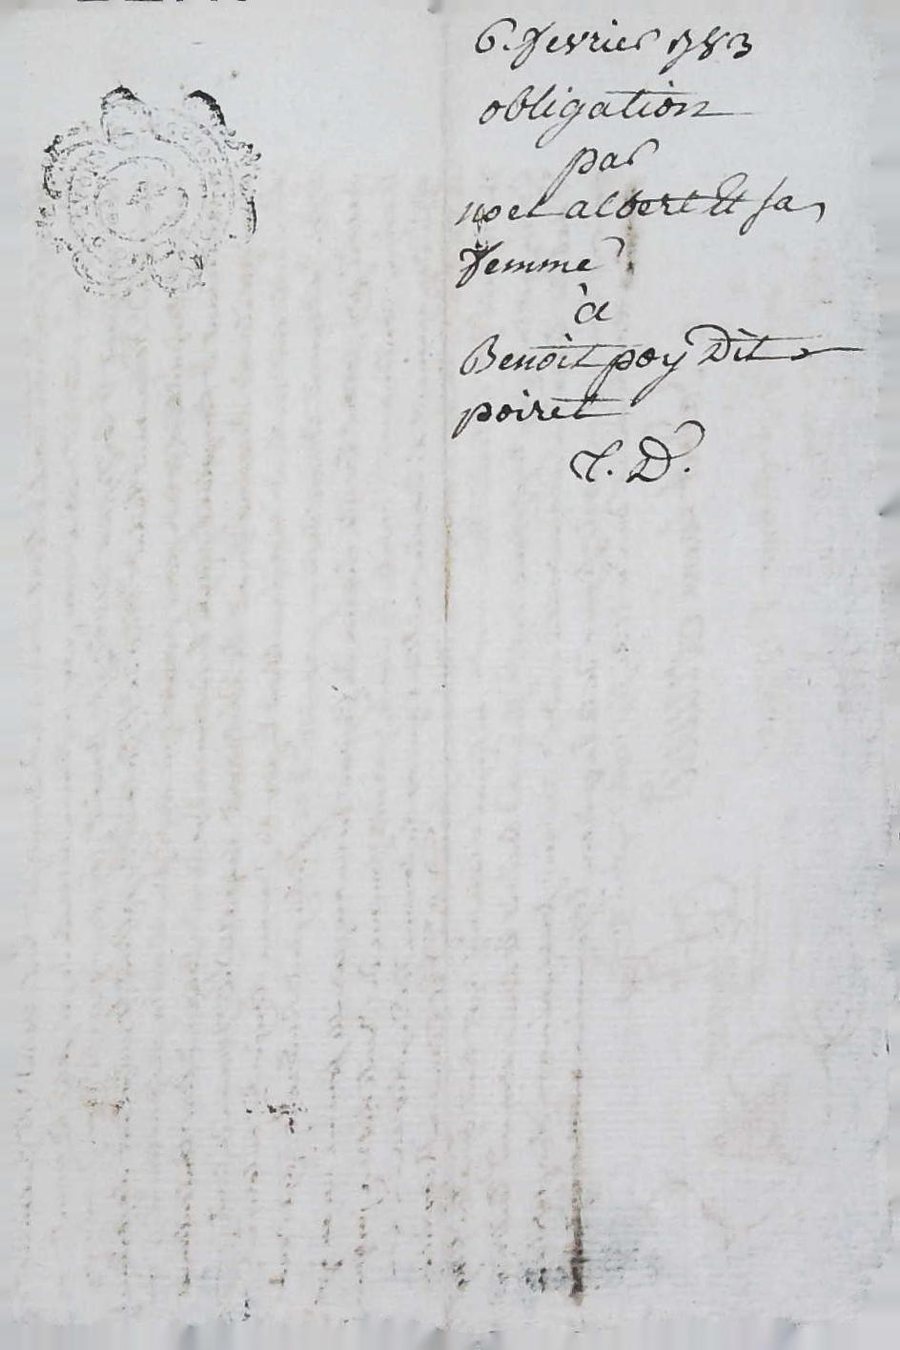 6. fevrier 1783
obligation
par
noel albert Et sa
femme
à
Benoit poy Dit
poiret
C. D.